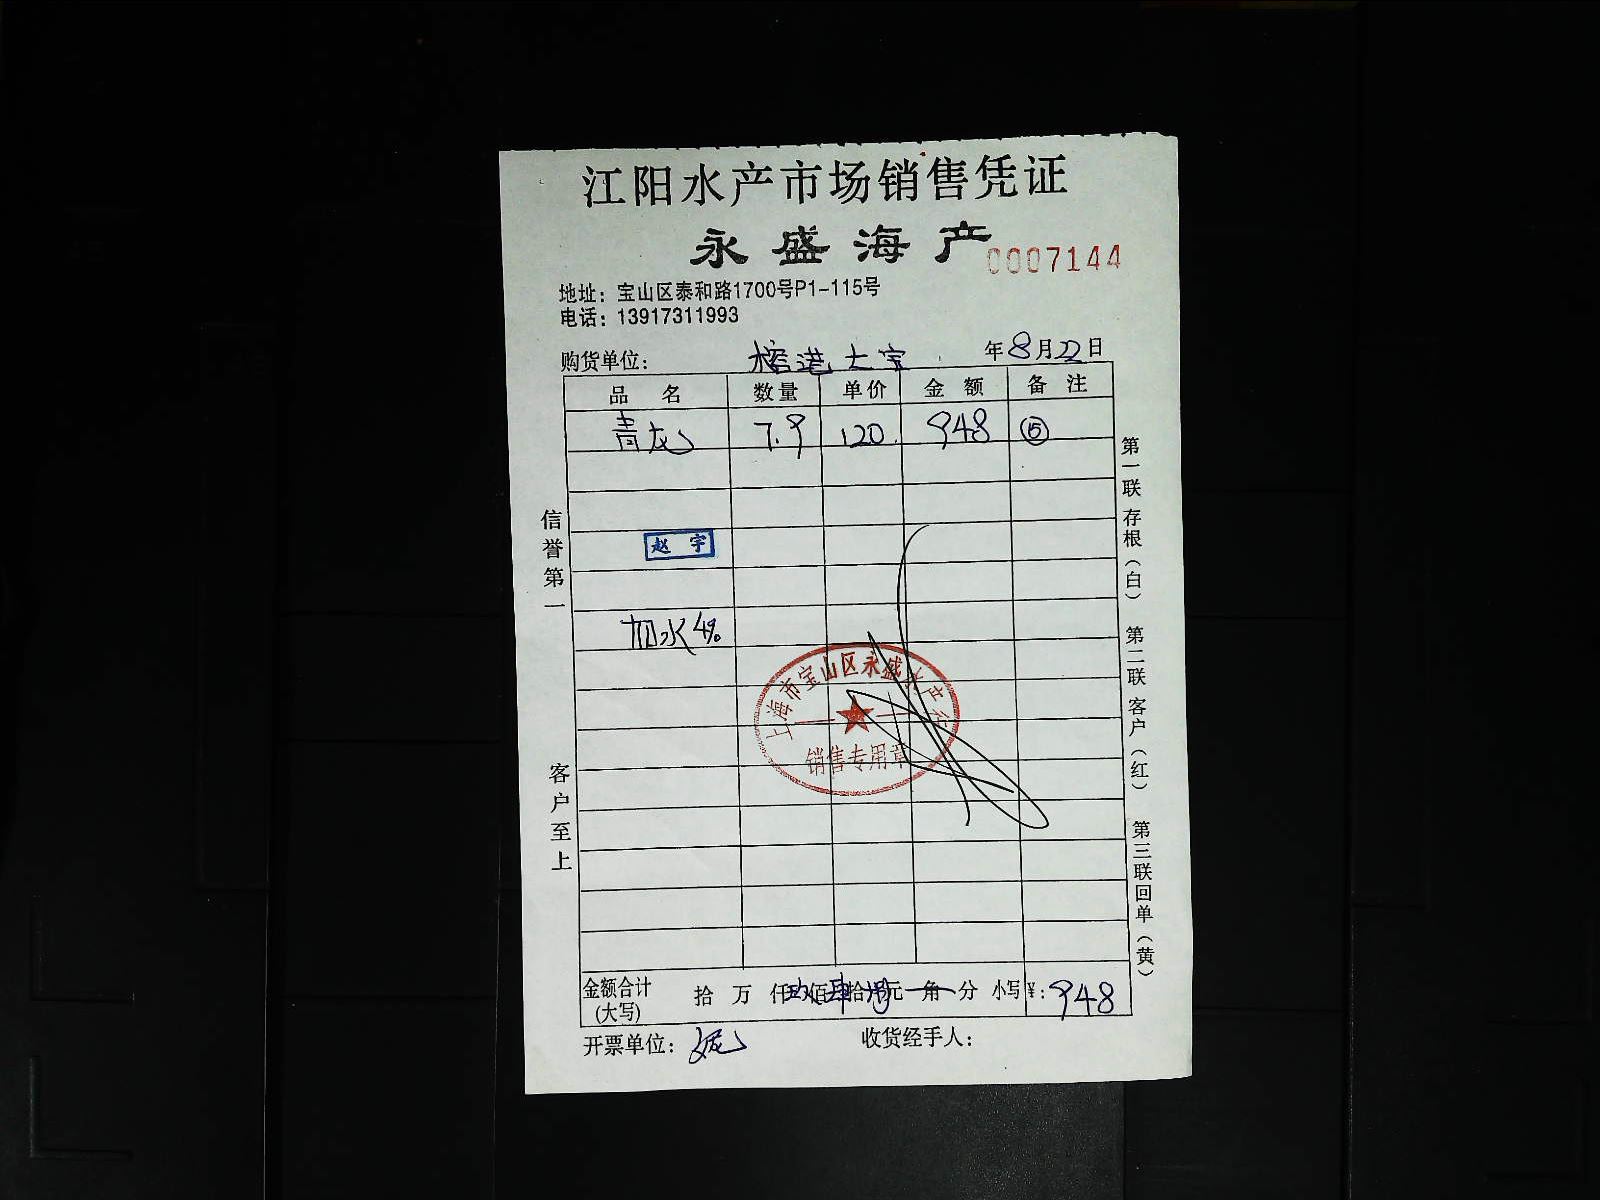 江阳水产市场销售凭证
永盛海产
0007144
地址：宝山区泰和路1700号P1-115号
电话：13917311993
购货单位： 榕港大宝 年8月22日
品名 数量 单价 金额 备注
青龙 7.9 120 948 ⑮
赵宇
加水4%
上海市宝山区永盛水产行
销售专用章
信誉第一
客户至上
第一联存根（白） 第二联客户（红） 第三联回单（黄）
金额合计(大写) 拾 万 仟 玖佰 肆拾 捌元 角 分 小写¥：948
开票单位： 收货经手人：